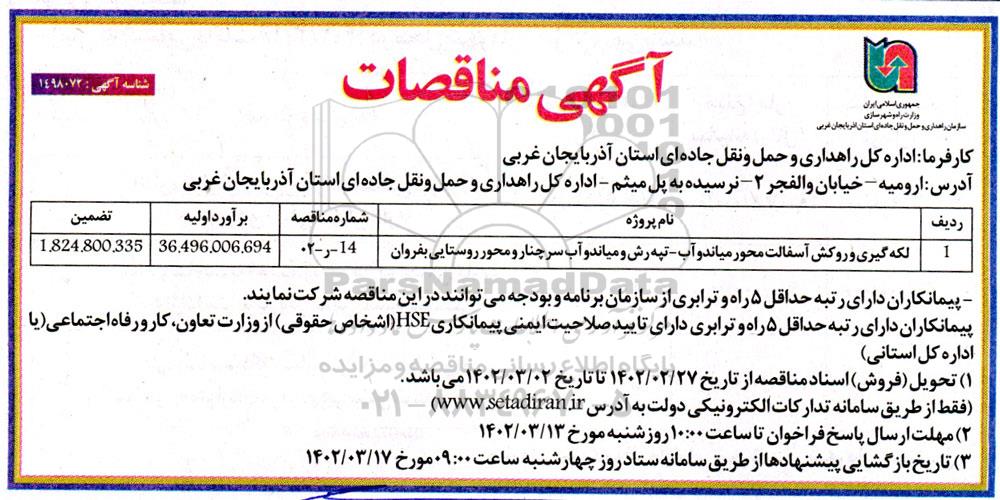 جمهوری اسلامی ایران
وزارت راه و شهرسازی
سازمان راهداری و حمل و نقل جاده‌ای استان آذربایجان غربی
آگهی مناقصات
شناسه آگهی : ۱۴۹۸۰۷۲
کارفرما: اداره کل راهداری و حمل و نقل جاده‌ای استان آذربایجان غربی
آدرس: ارومیه - خیابان والفجر ۲ - نرسیده به پل میثم - اداره کل راهداری و حمل و نقل جاده‌ای استان آذربایجان غربی
ردیف نام پروژه شماره مناقصه برآورد اولیه تضمین
1 لکه گیری و روکش آسفالت محور میاندوآب - تپه رش و میاندوآب سرچنار و محور روستایی بفروان 14-ر-۰۲ 36,496,006,694 1,824,800,335
- پیمانکاران دارای رتبه حداقل ۵ راه و ترابری از سازمان برنامه و بودجه می توانند در این مناقصه شرکت نمایند.
پیمانکاران دارای رتبه حداقل ۵ راه و ترابری دارای تایید صلاحیت ایمنی پیمانکاری HSE (اشخاص حقوقی) از وزارت تعاون، کار و رفاه اجتماعی (یا
اداره کل استانی)
۱) تحویل (فروش) اسناد مناقصه از تاریخ ۱۴۰۲/۰۲/۲۷ تا تاریخ ۱۴۰۲/۰۳/۰۲ می باشد.
(فقط از طریق سامانه تدارکات الکترونیکی دولت به آدرس www.setadiran.ir)
۲) مهلت ارسال پاسخ فراخوان تا ساعت ۱۰:۰۰ روز شنبه مورخ ۱۴۰۲/۰۳/۱۳
۳) تاریخ بازگشایی پیشنهادها از طریق سامانه ستاد روز چهارشنبه ساعت ۰۹:۰۰ مورخ ۱۴۰۲/۰۳/۱۷
ParsNamadData
پایگاه اطلاع رسانی مناقصه و مزایده
۰۲۱-۸۸۳۴۹۶۷۰-۵